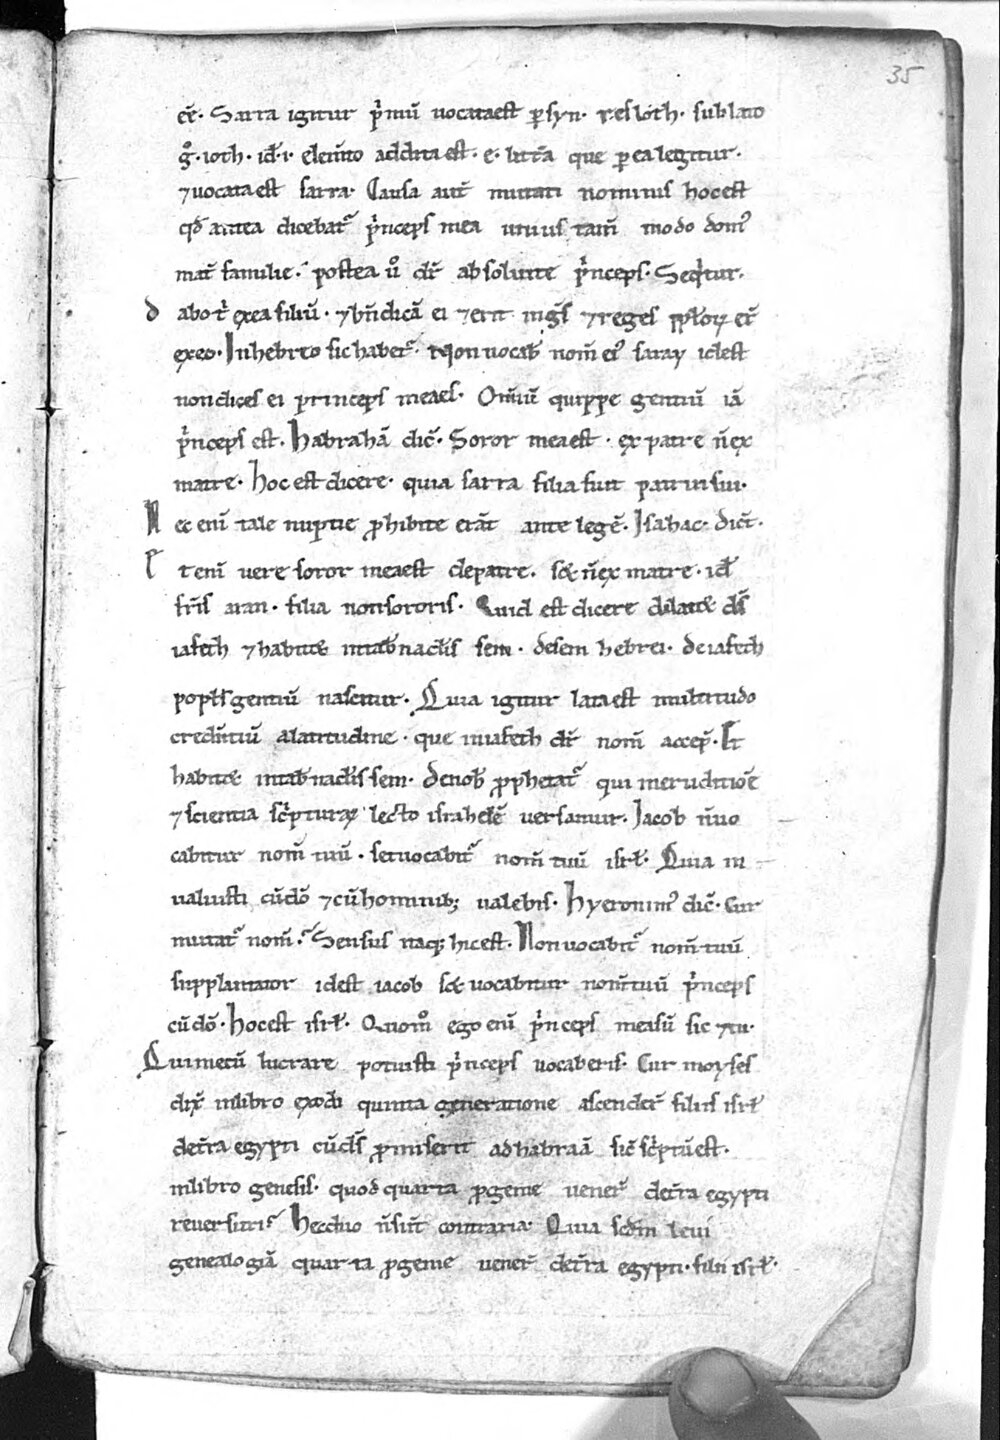 35
eē. Sarra igitur p̄mū uocata est p syn. res loth. sublato
g̊. ioth. id. i. elem̄to addita est. e. litt̄a que p ea legitur.
⁊ uocata est sarra. Causa aut̄ mutati nominis hoc est
qd̄ antea dicebat᷑ p̄nceps mea unius tam̄ modo domꝰ
mat̄ familie. postea ů dr̄ absolute p̄nceps. Seq̄tur.
d abo t̄ ex ea filiū. ⁊ bn̄dicā ei ⁊ erit in gn̄s ⁊ reges pploꝝ er̄
ex eo. In hebreo sic habet᷑. Non uocab̄ nom̄ eiꝰ saray id est
non dices ei princeps mea es. Om̄iū quippe gentiū iā
p̄nceps est. habrahā dic̄. Soror mea est. ex patre n̄ ex
matre. hoc est dicere. quia sarra filia fuit patrui sui.
N ec eni tale nuptie phibite erāt ante legē. Isahac. dict̄.
E t eni uere soror mea est de patre. sed n̄ ex matre. id ē
fr̄is aran. filia non sororis. Quid est dicere dilatet ds̄
iafeth ⁊ habitet in tab̄naclis sem. de sem hebrei. de iafeth
popl̄s gentiū nascitur. Quia igitur lata est multitudo
credn̄tiū a latitudine. que in iafeth dr̄ nom̄ accep̄. Et
habitet in tab̄naclis sem. de nob̄ pphetat᷑ qui in eruditioē
⁊ scientia sc̄pturaꝝ lecto israhele uersamur. Iacob n̄ uo
cabitur nom̄ tuū. set uocabit᷑ nom̄ tuū isrl̄. Quia in
ualuisti cū dō ⁊ cū hominib; ualebis. hyeronimꝰ dic̄. Cur
mutat᷑ nom̄. Sensus naq; hic est. Non uocabit᷑ nom̄ tuū
supplantator id est iacob sed uocabitur nom̄ tuū p̄nceps
cū dō. hoc est isrl̄. Quom̊ ego eni p̄nceps me sū sic ⁊ tu.
Qui mecū luctare potuisti p̄nceps uocaberis. Cur moyses
dix̄ in libro exodi quinta generatione ascender̄ filiis isrl̄
de t̄ra egypti cū ds̄ pmiserit ad habraā sic̄ sc̄ptū est.
in libro genesis. quod quarta pgenie uener̄ de t̄ra egypti
reuersuris hec duo n̄ sūt contraria. Quia scdm leui
genealogiā quarta pgenie uener̄ de t̄ra egypti. filii isrl̄.